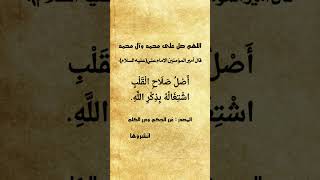 اللهم صل على محمد وآل محمد
قال أمير المؤمنين الإمام علي(عليه السلام):
أَصْلُ صَلَاحِ الْقَلْبِ
اشْتِغَالُهُ بِذِكْرِ اللَّهِ.
المصدر : غرر الحكم ودرر الكلم
انشروها